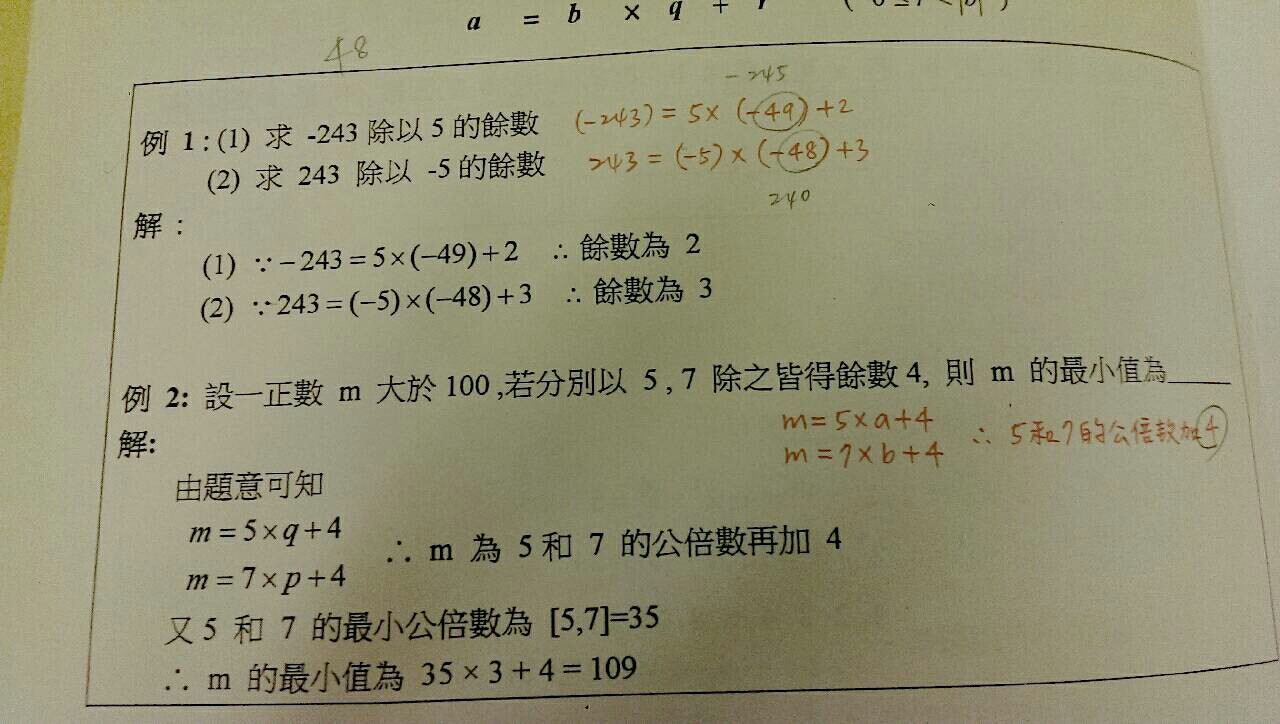 a = b × q + r ( 0 ≤ r < |b| )
48
-245
例 1 : (1) 求 -243 除以 5 的餘數 (-243) = 5 × (-49) + 2
(2) 求 243 除以 -5 的餘數 243 = (-5) × (-48) + 3
240
解 :
(1) ∵ −243 = 5×(−49)+2 ∴ 餘數為 2
(2) ∵ 243 = (−5)×(−48)+3 ∴ 餘數為 3
例 2: 設一正數 m 大於 100 ,若分別以 5 , 7 除之皆得餘數 4, 則 m 的最小值為____
解: m = 5×a+4 ∴ 5和7的公倍数加4
m = 7×b+4
由題意可知
m = 5×q+4
∴ m 為 5 和 7 的公倍數再加 4
m = 7×p+4
又 5 和 7 的最小公倍數為 [5,7]=35
∴ m 的最小值為 35 × 3 + 4 = 109